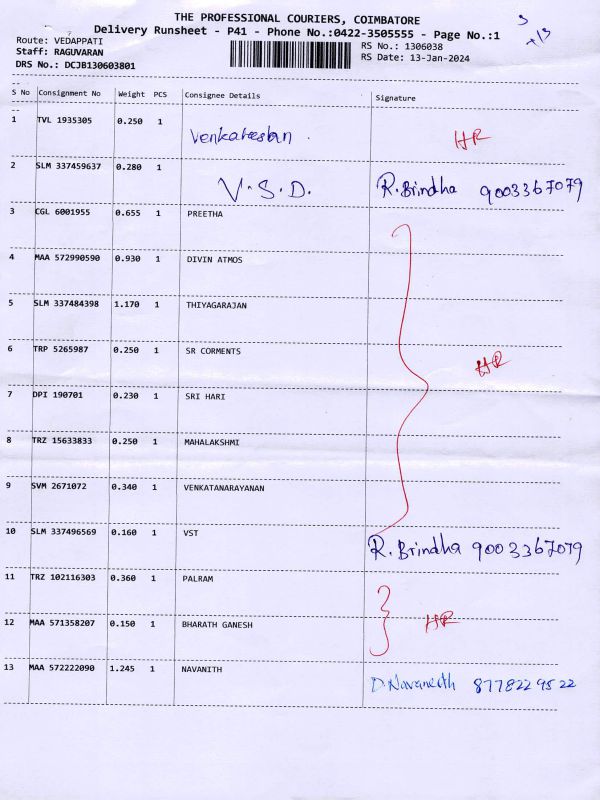 THE PROFESSIONAL COURIERS, COIMBATORE
Delivery Runsheet - P41 - Phone No.:0422-3505555 - Page No.:1
3
+13
Route: VEDAPPATI
Staff: RAGUVARAN
DRS No.: DCJB130603801
RS No.: 1306038
RS Date: 13-Jan-2024
S No Consignment No Weight PCS Consignee Details Signature
1 TVL 1935305 0.250 1 Venkatesan HR
2 SLM 337459637 0.280 1 V.S.D. R.Brindha 9003367079
3 CGL 6001955 0.655 1 PREETHA
4 MAA 572990590 0.930 1 DIVIN ATMOS
5 SLM 337484398 1.170 1 THIYAGARAJAN
6 TRP 5265987 0.250 1 SR CORMENTS HR
7 DPI 190701 0.230 1 SRI HARI
8 TRZ 15633833 0.250 1 MAHALAKSHMI
9 SVM 2671072 0.340 1 VENKATANARAYANAN
10 SLM 337496569 0.160 1 VST R.Brindha 9003367079
11 TRZ 102116303 0.360 1 PALRAM
12 MAA 571358207 0.150 1 BHARATH GANESH HR
13 MAA 572222090 1.245 1 NAVANITH D.Navaneeth 8778229522